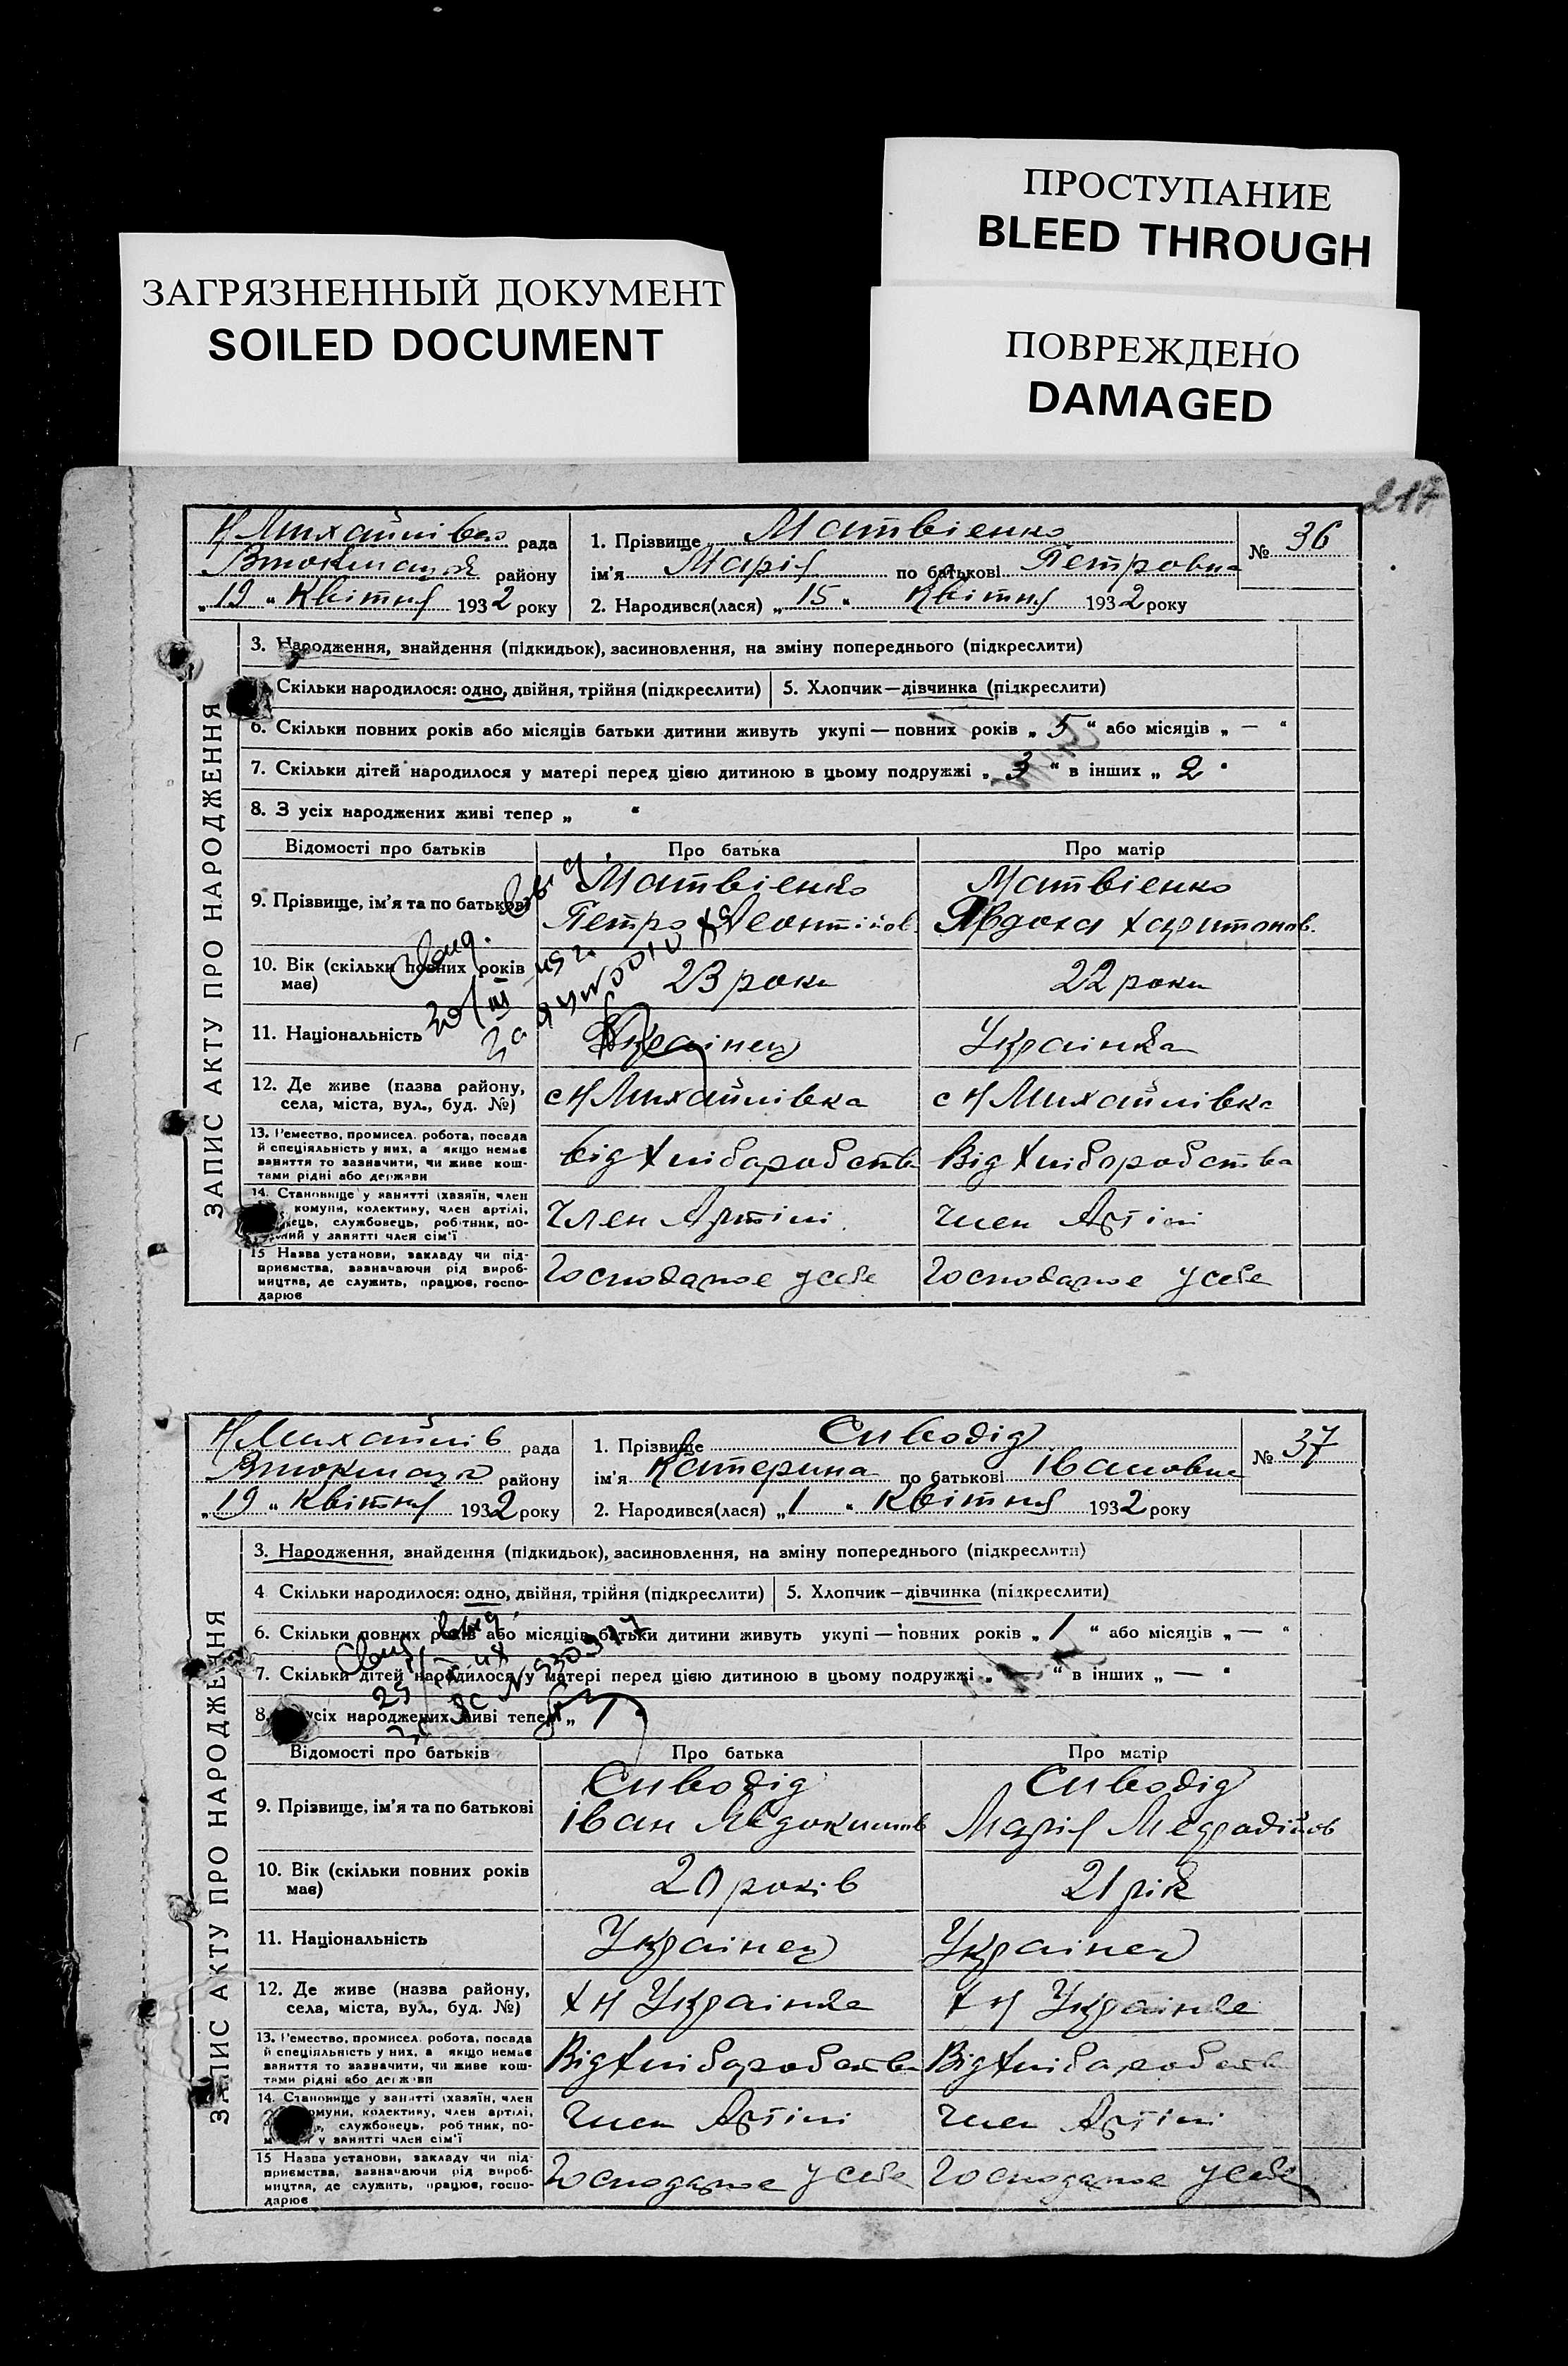 ПРОСТУПАНИЕ
BLEED THROUGH
ЗАГРЯЗНЕННЫЙ ДОКУМЕНТ
SOILED DOCUMENT
ПОВРЕЖДЕНО
DAMAGED
217
Н Михайлівс рада
Втокмацьк району
„19 “ Квітня 1932 року
1. Прізвище Матвієнко
ім’я Марія по батькові Петровна
2. Народився(лася) „15 “ Квітня 1932 року
№ 36
ЗАПИС АКТУ ПРО НАРОДЖЕННЯ
3. Народження, знайдення (підкидьок), засиновлення, на зміну попереднього (підкреслити)
Скільки народилося: одно, двійня, трійня (підкреслити)
5. Хлопчик—дівчинка (підкреслити)
6. Скільки повних років або місяців батьки дитини живуть укупі — повних років „ 5 “ або місяців „ — “
7. Скільки дітей народилося у матері перед цією дитиною в цьому подружжі „ 3 “ в інших „ 2 “
8. З усіх народжених живі тепер „ “
Відомості про батьків Про батька Про матір
9. Прізвище, ім’я та по батькові
Матвієнко
Петро Леонтійов.
Матвієнко
Явдоха Харитонов.
10. Вік (скільки повних років має)
23 роки
22 роки
11. Національність
Українец
Українка
12. Де живе (назва району,
села, міста, вул., буд. №)
с Н Михайлівка
с Н Михайлівка
13. Ремество, промисел. робота, посада
й спеціяльність у них, а якщо немає
заняття то зазначити, чи живе кош-
тами рідні або держави
від Хліборобства
Від Хліборобства
14. Становище у занятті (хазяїн, член
комуни, колективу, член артілі,
службовець, робітник, по-
у занятті член сім’ї
Член Артілі
Член Артілі
15 Назва установи, закладу чи під-
приємства, зазначаючи рід вироб-
ництва, де служить, працює, госпо-
дарює
Господарює у себе
Господарює у себе
Н Михайлів рада
Втокмацьк району
„19 “ Квітня 1932 року
1. Прізвище Сиводід
ім’я Катерина по батькові Івановна
2. Народився(лася) „1 “ Квітня 1932 року
№ 37
ЗАПИС АКТУ ПРО НАРОДЖЕННЯ
3. Народження, знайдення (підкидьок), засиновлення, на зміну попереднього (підкреслити)
4 Скільки народилося: одно, двійня, трійня (підкреслити)
5. Хлопчик—дівчинка (підкреслити)
6. Скільки повних років або місяців батьки дитини живуть укупі — повних років „ 1 “ або місяців „ — “
7. Скільки дітей народилося у матері перед цією дитиною в цьому подружжі „ — “ в інших „ — “
8. усіх народжених живі тепер „ 1
Відомості про батьків Про батька Про матір
9. Прізвище, ім’я та по батькові
Сиводід
Іван
Сиводід
Марія
10. Вік (скільки повних років
має)
20 років
21 рік
11. Національність
Українец
Українец
12. Де живе (назва району,
села, міста, вул., буд. №)
х Н Українка
х Н Українка
13. Ремество, промисел. робота, посада
й спеціяльність у них, а якщо немає
заняття то зазначити, чи живе кош-
тами рідні або держави
Від Хліборобства
Від Хліборобств
14. Становище у занятті (хазяїн, член
комуни, колективу, член артілі,
службовець, робітник, по-
у занятті член сім’ї
Член Артілі
Член Артілі
15 Назва установи, закладу чи під-
приємства, зазначаючи рід вироб-
ництва, де служить, працює, госпо-
дарює
Господарює у себе
Господарює у себе